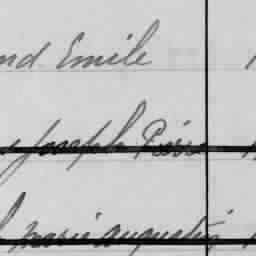 nd Emile
Joseph Pierre
Marie Augustin